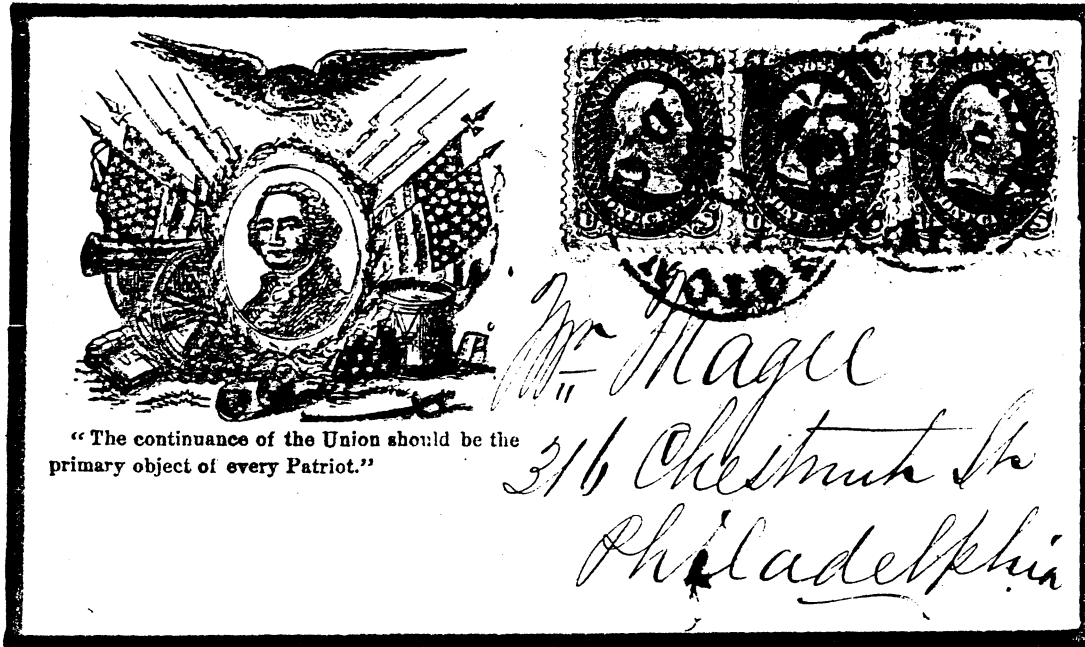 “The continuance of the Union should be the
primary object of every Patriot.”
Wm Magee
316 Chestnut St
Philadelphia